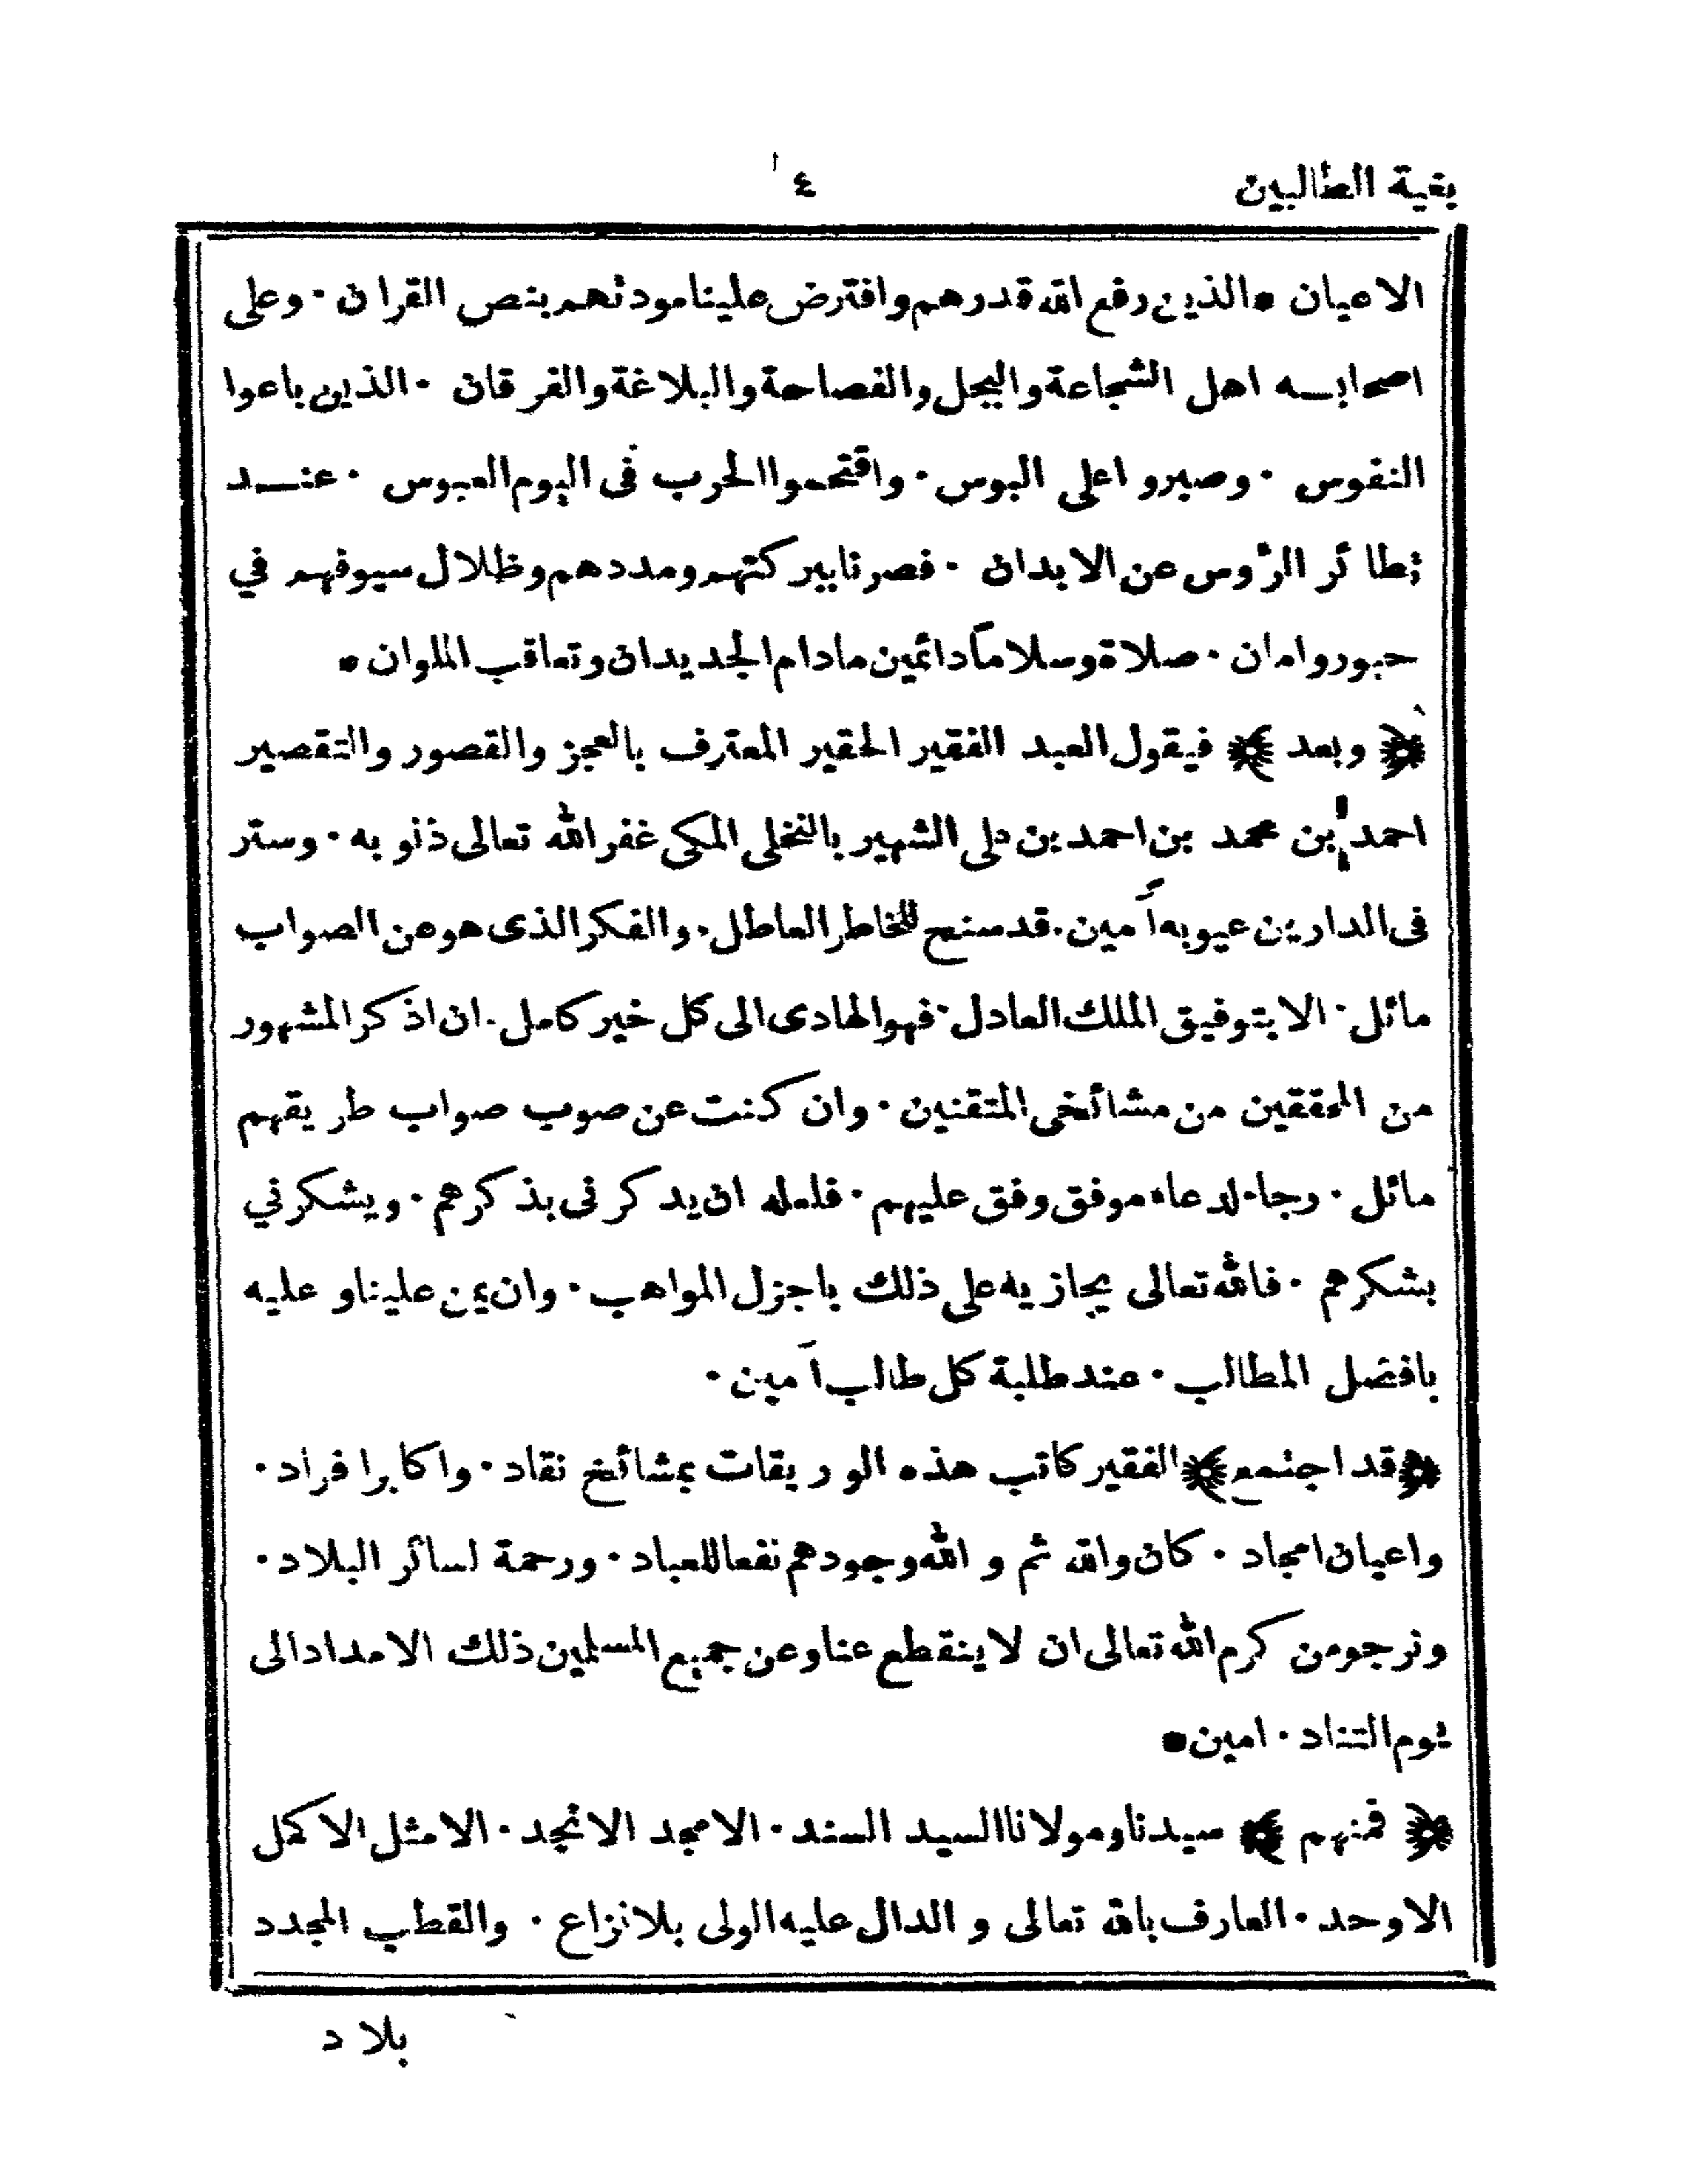 بغية الطالبين ٤
الاعيان • الذين رفع الله قدرهم وافترض علينا مودتهم بنص القران ٠ وعلى
اصحابه اهل الشجاعة والبجل والفصاحة والبلاغة والفرقان ٠ الذين باعوا
النفوس ٠ وصبروا على البوس ٠ واقتحموا الحرب فى اليوم العبوس ٠ عنـد
تطائر الرؤس عن الابدان ٠ فصرنا ببركتهم ومددهم وظلال سيوفهم في
حبور وامان ٠ صلاة وسلاما دائمين مادام الجديدان وتعاقب الملوان •
﴿ وبعد ﴾ فيقول العبد الفقير الحقير المعترف بالعجز والقصور والتقصير
احمد بن محمد بن احمد بن على الشهير بالنخلى المكى غفر الله تعالى ذنوبه ٠ وستر
فى الدارين عيوبه آمين ٠ قد سنح للخاطر العاطل ٠ والفكر الذى هو عن الصواب
مائل ٠ الا بتوفيق الملك العادل ٠ فهو الهادى الى كل خير كامل ٠ ان اذكر المشهور
من المحققين من مشائخى المتقنين ٠ وان كنت عن صوب صواب طريقهم
مائل ٠ رجاء لدعاء موفق وفق عليهم ٠ فلعله ان يدكرنى بذكرهم ٠ ويشكرني
بشكرهم ٠ فالله تعالى يجازيه على ذلك باجزل المواهب ٠ وان يمن علينا وعليه
بافضل المطالب ٠ عند طلبة كل طالب آمين ٠
﴿ قد اجتمع ﴾ الفقير كاتب هذه الوريقات بمشائخ نقاد ٠ واكابر افراد ٠
واعيان امجاد ٠ كان والله ثم و الله وجودهم نفعا للعباد ٠ ورحمة لسائر البلاد ٠
ونرجو من كرم الله تعالى ان لا ينقطع عنا وعن جميع المسلمين ذلك الامداد الى
يوم التناد ٠ امين •
﴿ فمنهم ﴾ سيدنا ومولانا السيد السند ٠ الامجد الانجد ٠ الامثل الاكمل
الاوحد ٠ العارف بالله تعالى و الدال عليه الولى بلا نزاع ٠ والقطب المجدد
بلاد